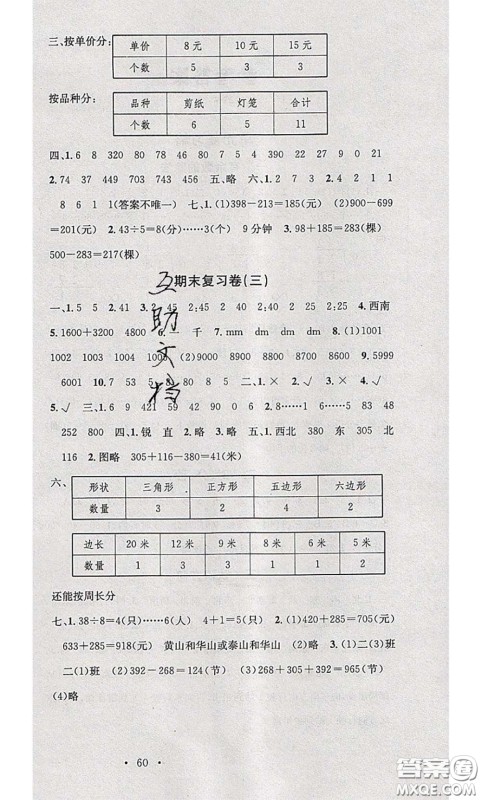 三、按单价分：
单价 8元 10元 15元
个数 5 3 3
按品种分：
品种 剪纸 灯笼 合计
个数 6 5 11
四、1.6 8 320 80 78 46 80 7 5 4 390 22 27 9 0 21
2.74 37 449 545 737 483 五、略 六、1.2 7 3 2.4 2 1
1 8 6 1 1(答案不唯一) 七、1.(1)398－213＝185(元) (2)900－699
＝201(元) 2.43÷5＝8(分)……3(分) 9分钟 3.98＋185＝283(棵)
500－283＝217(棵)
期末复习卷(三)
互助文档
一、1.5 5 2.41 3.2 45 2:45 20 2 25 2:25 4.西南
5.1600＋3200 4800 6.一 千 7.mm dm dm 8.(1)1001
1002 1003 1004 1005 (2)9000 8900 8800 8700 8600 9.5999
6001 10.7 53 5 80 80 8 二、1.× 2.√ 3.× 4.×
5.√ 三、1.6 9 421 59 42 90 0 6 2.8……1 6……5 83 48
252 800 四、1.锐 直 2.略 3.略 五、1.西北 380 东 305 北
116 2.图略 305＋116－380＝41(米)
六、
形状 三角形 正方形 五边形 六边形
数量 3 2 4 2
边长 20米 12米 9米 8米 6米 5米
数量 1 3 3 1 1 2
还能按周长分
七、1.38÷8＝4(只)……6(人) 4＋1＝5(只) 2.(1)420＋285＝705(元)
633＋285＝918(元) 黄山和华山或泰山和华山 (2)略 3.(1)二(3)班
二(1)班 二(2)班 (2)392－268＝124(节) (3)268＋305＋392＝965(节)
(4)略
· 60 ·
答案圈
MXQE.COM